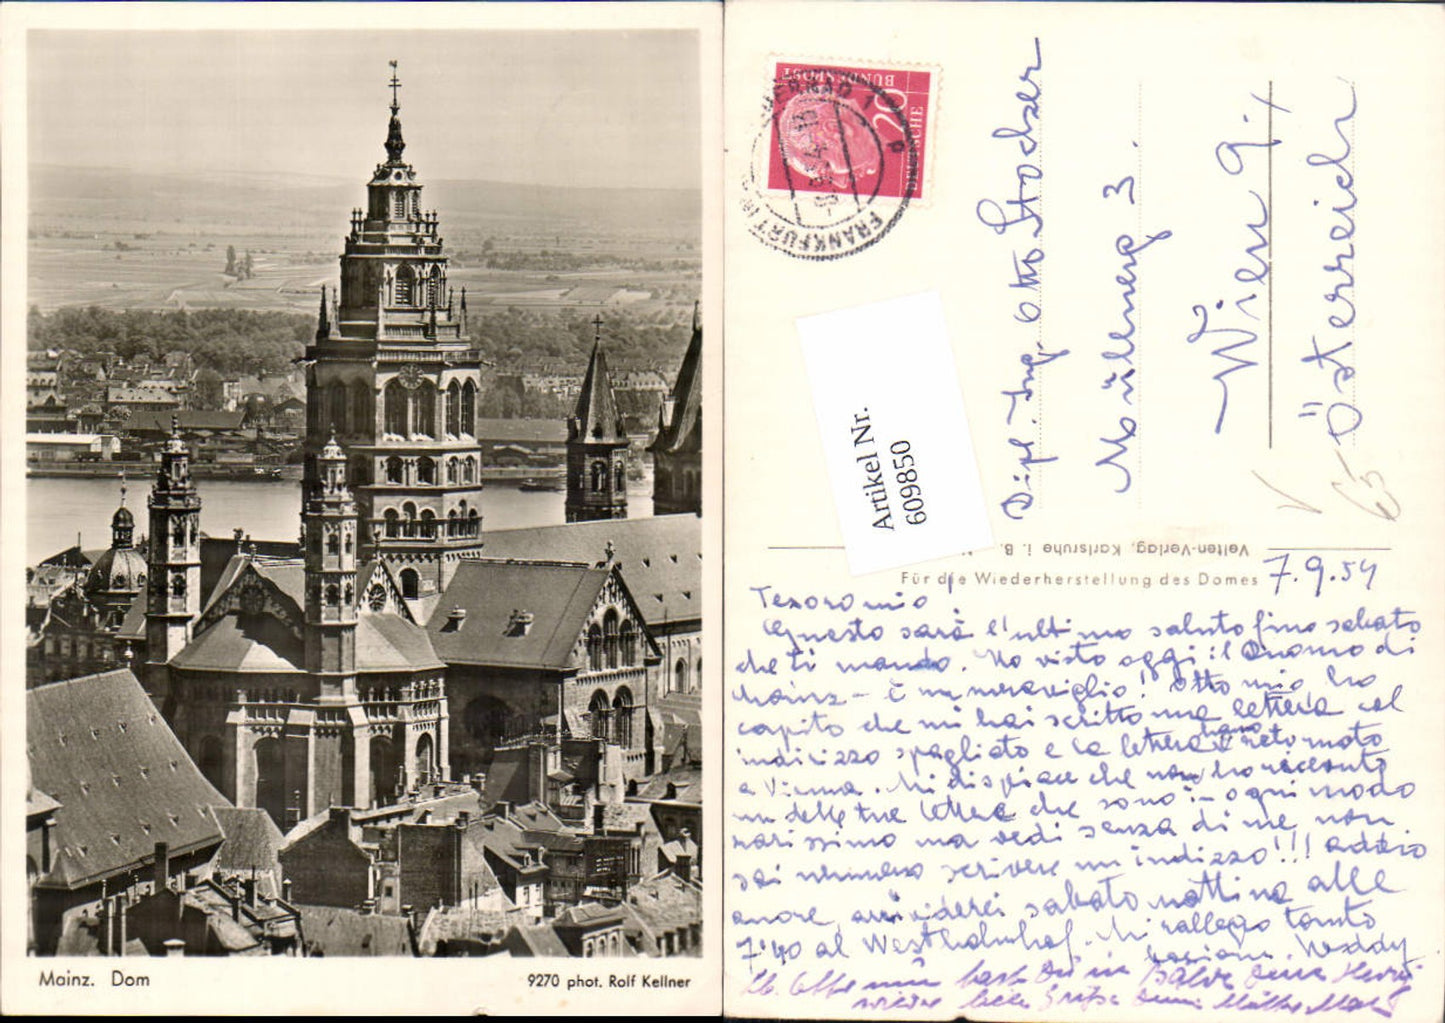 Mainz. Dom
9270 phot. Rolf Kellner
DEUTSCHE
BUNDESPOST
20
FRANKFURT
Artikel Nr.
609850
Dipl. Ing. Otto Stocker
3.
Wien 9.
Österreich
65
Velten-Verlag, Karlsruhe i. B.
Für die Wiederherstellung des Domes
7.9.54
Tesoro mio
Questo sarà l'ultimo saluto fino sabato
che ti mando. Ho visto oggi il Duomo di
Mainz - è una meraviglia! Otto mio, ho
capito che mi hai scritto una lettera al
indirizzo sbagliato e la lettera hanno retornato
a Vienna. Mi dispiace che non ho
un delle tue lettere che sono in ogni modo
ma vedi senza di me non
sai nemmeno scrivere un indizzo!!! addio
amore, arrividerci sabato mattina alle
7'40 al Westbahnhof. Mi rallegro tanto